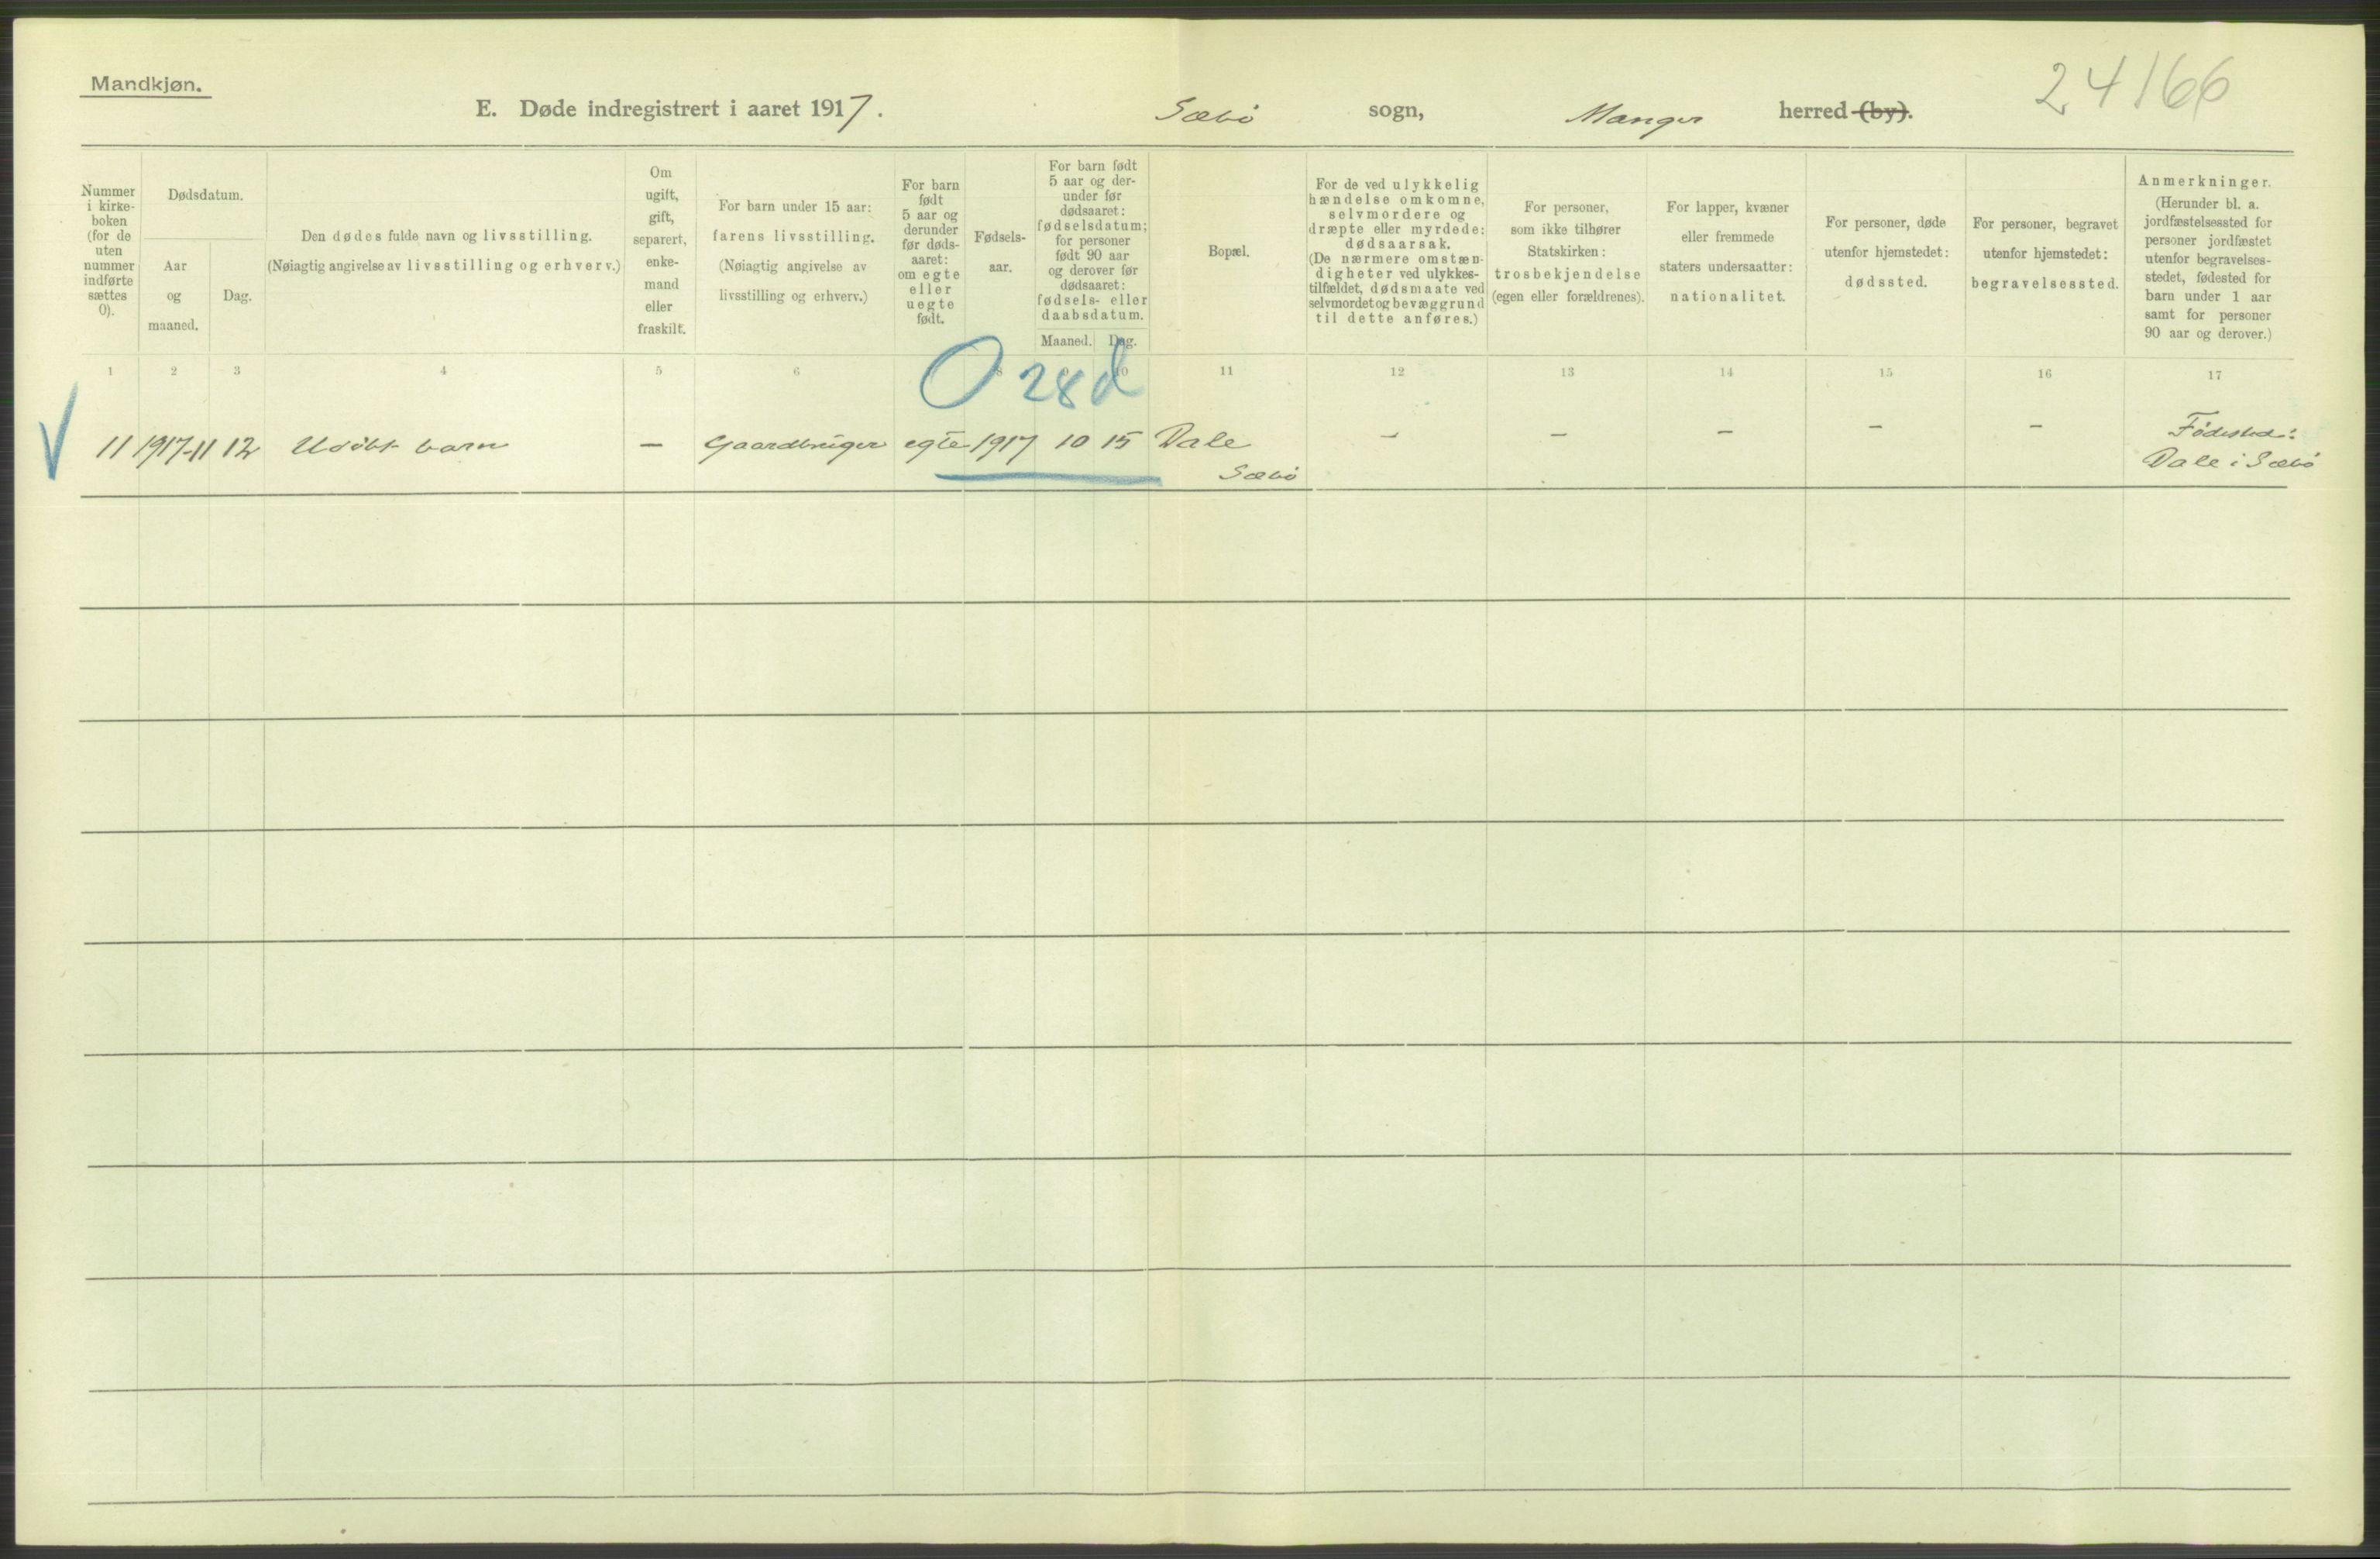 Mandkjøn.
24166
E. Døde indregistrert i aaret 1917. Sæbö sogn, Manger herred (by).
Nummer
i kirke-
boken
(for de
uten
nummer
indførte
sættes
0).
Dødsdatum.
Aar
og
maaned.
Dag.
Den dødes fulde navn og livsstilling.
(Nøiagtig angivelse av livsstilling og erhverv.)
Om
ugift,
gift,
separert,
enke-
mand
eller
fraskilt.
For barn under 15 aar:
farens livsstilling.
(Nøiagtig angivelse av
livsstilling og erhverv.)
For barn
født
5 aar og
derunder
før døds-
aaret:
om egte
eller
uegte
født.
Fødsels-
aar.
For barn født
5 aar og der-
under før
dødsaaret:
fødselsdatum;
for personer
født 90 aar
og derover før
dødsaaret:
fødsels- eller
daabsdatum.
Maaned. Dag.
Bopæl.
For de ved ulykkelig
hændelse omkomne,
selvmordere og
dræpte eller myrdede:
dødsaarsak.
(De nærmere omstæn-
digheter ved ulykkes-
tilfældet, dødsmaate ved
selvmordet og bevæggrund
til dette anføres.)
For personer,
som ikke tilhører
Statskirken:
trosbekjendelse
(egen eller forældrenes).
For lapper, kvæner
eller fremmede
staters undersaatter:
nationalitet.
For personer, døde
utenfor hjemstedet:
dødssted.
For personer, begravet
utenfor hjemstedet:
begravelsessted.
Anmerkninger.
(Herunder bl. a.
jordfæstelsessted for
personer jordfæstet
utenfor begravelses-
stedet, fødested for
barn under 1 aar
samt for personer
90 aar og derover.)
1 2 3 4 5 6 8 9 10 11 12 13 14 15 16 17
0 28 d
11 1917-11 12 Udöbt barn — Gaardbruger egte 1917 10 15 Dale – – – – – Födested:
Sæbö Dale i Sæbö